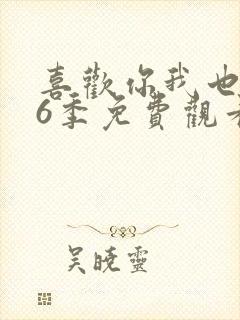 喜歡你我也
6季免費觀看
吳曉靈